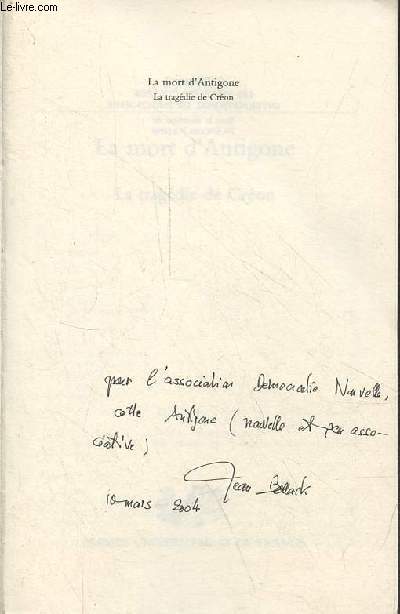 La mort d'Antigone
La tragédie de Créon
La mort d'Antigone
La tragédie de Créon
pour l'association Démocratie Nouvelle,
cette Antigone (nouvelle et peu asso-
ciative)
Jean Bollack
10 mars 2004
© Le-livre.com